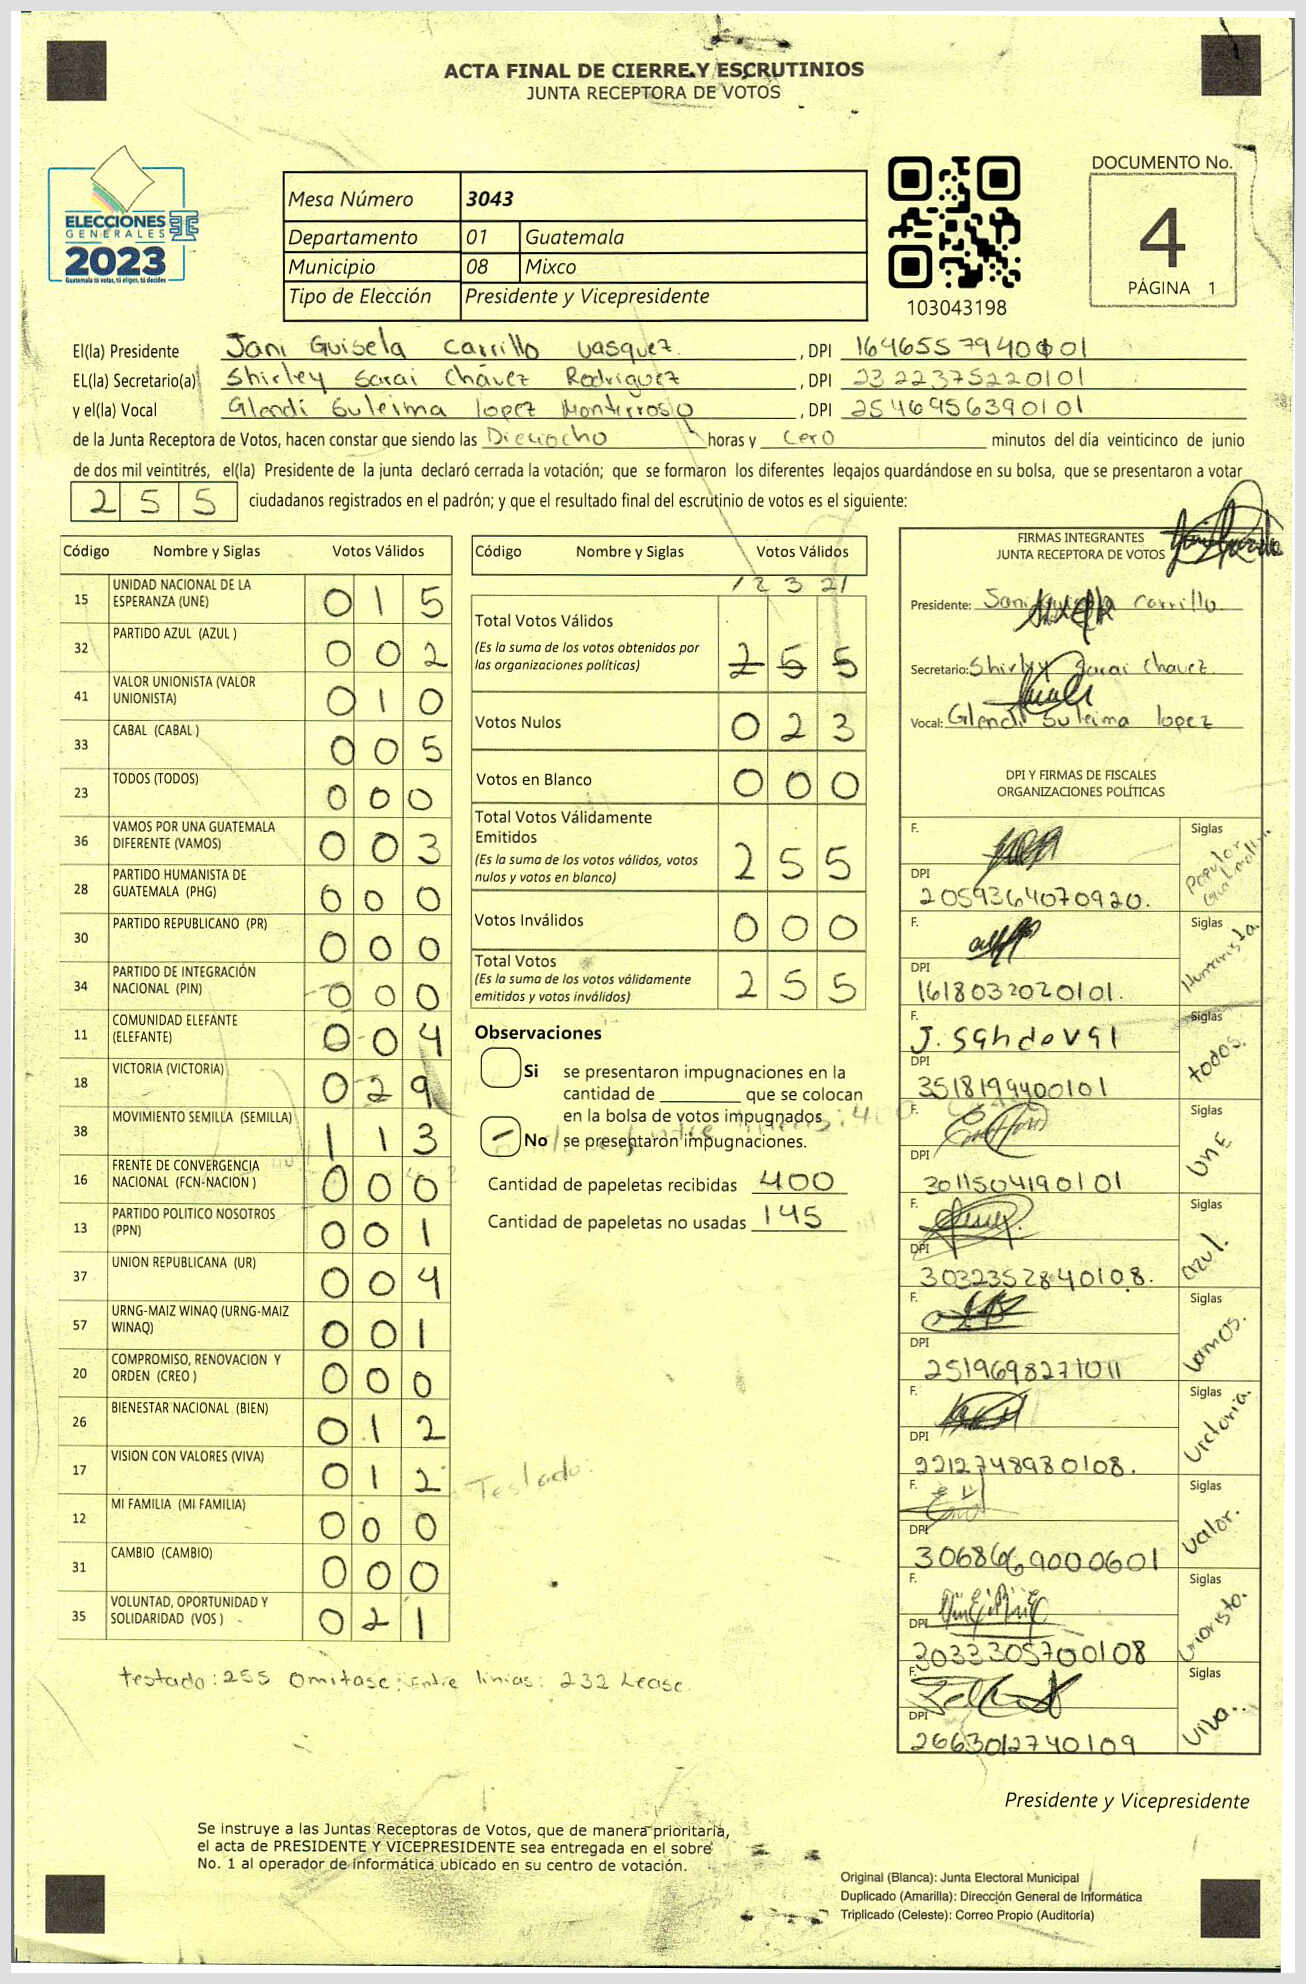 ACTA FINAL DE CIERRE Y ESCRUTINIOS
JUNTA RECEPTORA DE VOTOS
ELECCIONES
GENERALES
2023
Guatemala tú votas, tú eliges, tú decides
Mesa Número 3043
Departamento 01 Guatemala
Municipio 08 Mixco
Tipo de Elección Presidente y Vicepresidente
103043198
DOCUMENTO No.
4
PÁGINA 1
El(la) Presidente Jani Guisela Carrillo Vasquez , DPI 1646557940101
EL(la) Secretario(a) Shirley Sarai Chávez Rodriguez , DPI 2322375220101
y el(la) Vocal Glendi Suleima lopez Monterroso , DPI 2546956390101
de la Junta Receptora de Votos, hacen constar que siendo las Dieciocho horas y Cero minutos del día veinticinco de junio
de dos mil veintitrés, el(la) Presidente de la junta declaró cerrada la votación; que se formaron los diferentes legajos guardándose en su bolsa, que se presentaron a votar
255 ciudadanos registrados en el padrón; y que el resultado final del escrutinio de votos es el siguiente:
Código Nombre y Siglas Votos Válidos
15 UNIDAD NACIONAL DE LA ESPERANZA (UNE) 015
32 PARTIDO AZUL (AZUL ) 002
41 VALOR UNIONISTA (VALOR UNIONISTA) 010
33 CABAL (CABAL ) 005
23 TODOS (TODOS) 000
36 VAMOS POR UNA GUATEMALA DIFERENTE (VAMOS) 003
28 PARTIDO HUMANISTA DE GUATEMALA (PHG) 000
30 PARTIDO REPUBLICANO (PR) 000
34 PARTIDO DE INTEGRACIÓN NACIONAL (PIN) 000
11 COMUNIDAD ELEFANTE (ELEFANTE) 004
18 VICTORIA (VICTORIA) 029
38 MOVIMIENTO SEMILLA (SEMILLA) 113
16 FRENTE DE CONVERGENCIA NACIONAL (FCN-NACION ) 000
13 PARTIDO POLITICO NOSOTROS (PPN) 001
37 UNION REPUBLICANA (UR) 004
57 URNG-MAIZ WINAQ (URNG-MAIZ WINAQ) 001
20 COMPROMISO, RENOVACION Y ORDEN (CREO ) 000
26 BIENESTAR NACIONAL (BIEN) 012
17 VISION CON VALORES (VIVA) 012
12 MI FAMILIA (MI FAMILIA) 000
31 CAMBIO (CAMBIO) 000
35 VOLUNTAD, OPORTUNIDAD Y SOLIDARIDAD (VOS ) 021
testado: 255 Omitase: Entre linias: 232 Lease.
Código Nombre y Siglas Votos Válidos
Total Votos Válidos
(Es la suma de los votos obtenidos por
las organizaciones políticas) 255
Votos Nulos 023
Votos en Blanco 000
Total Votos Válidamente
Emitidos
(Es la suma de los votos válidos, votos
nulos y votos en blanco) 255
Votos Inválidos 000
Total Votos
(Es la suma de los votos válidamente
emitidos y votos inválidos) 255
Observaciones
Si se presentaron impugnaciones en la
cantidad de ________ que se colocan
en la bolsa de votos impugnados
No se presentaron impugnaciones.
Cantidad de papeletas recibidas 400
Cantidad de papeletas no usadas 145
Testado:
FIRMAS INTEGRANTES
JUNTA RECEPTORA DE VOTOS
Presidente: Jani Guisela Carrillo.
Secretario: Shirley Sarai Chavez.
Vocal: Glendi Suleima lopez
DPI Y FIRMAS DE FISCALES
ORGANIZACIONES POLÍTICAS
F. Siglas
DPI 2059364070920.
F. Siglas Humanista.
DPI 1618032020101.
F. J. Sandoval Siglas todos.
DPI 3518199400101
F. Siglas UNE
DPI 3011504190101
F. Siglas azul.
DPI 3032352840108.
F. Siglas Vamos.
DPI 2519698271011
F. Siglas Victoria.
DPI 2212748980108.
F. Siglas Valor.
DPI
F. Siglas
DPI 3033305700108
F. Siglas Viva..
DPI 2663012740109
Presidente y Vicepresidente
Se instruye a las Juntas Receptoras de Votos, que de manera prioritaria,
el acta de PRESIDENTE Y VICEPRESIDENTE sea entregada en el sobre
No. 1 al operador de informática ubicado en su centro de votación.
Original (Blanca): Junta Electoral Municipal
Duplicado (Amarilla): Dirección General de Informática
Triplicado (Celeste): Correo Propio (Auditoría)